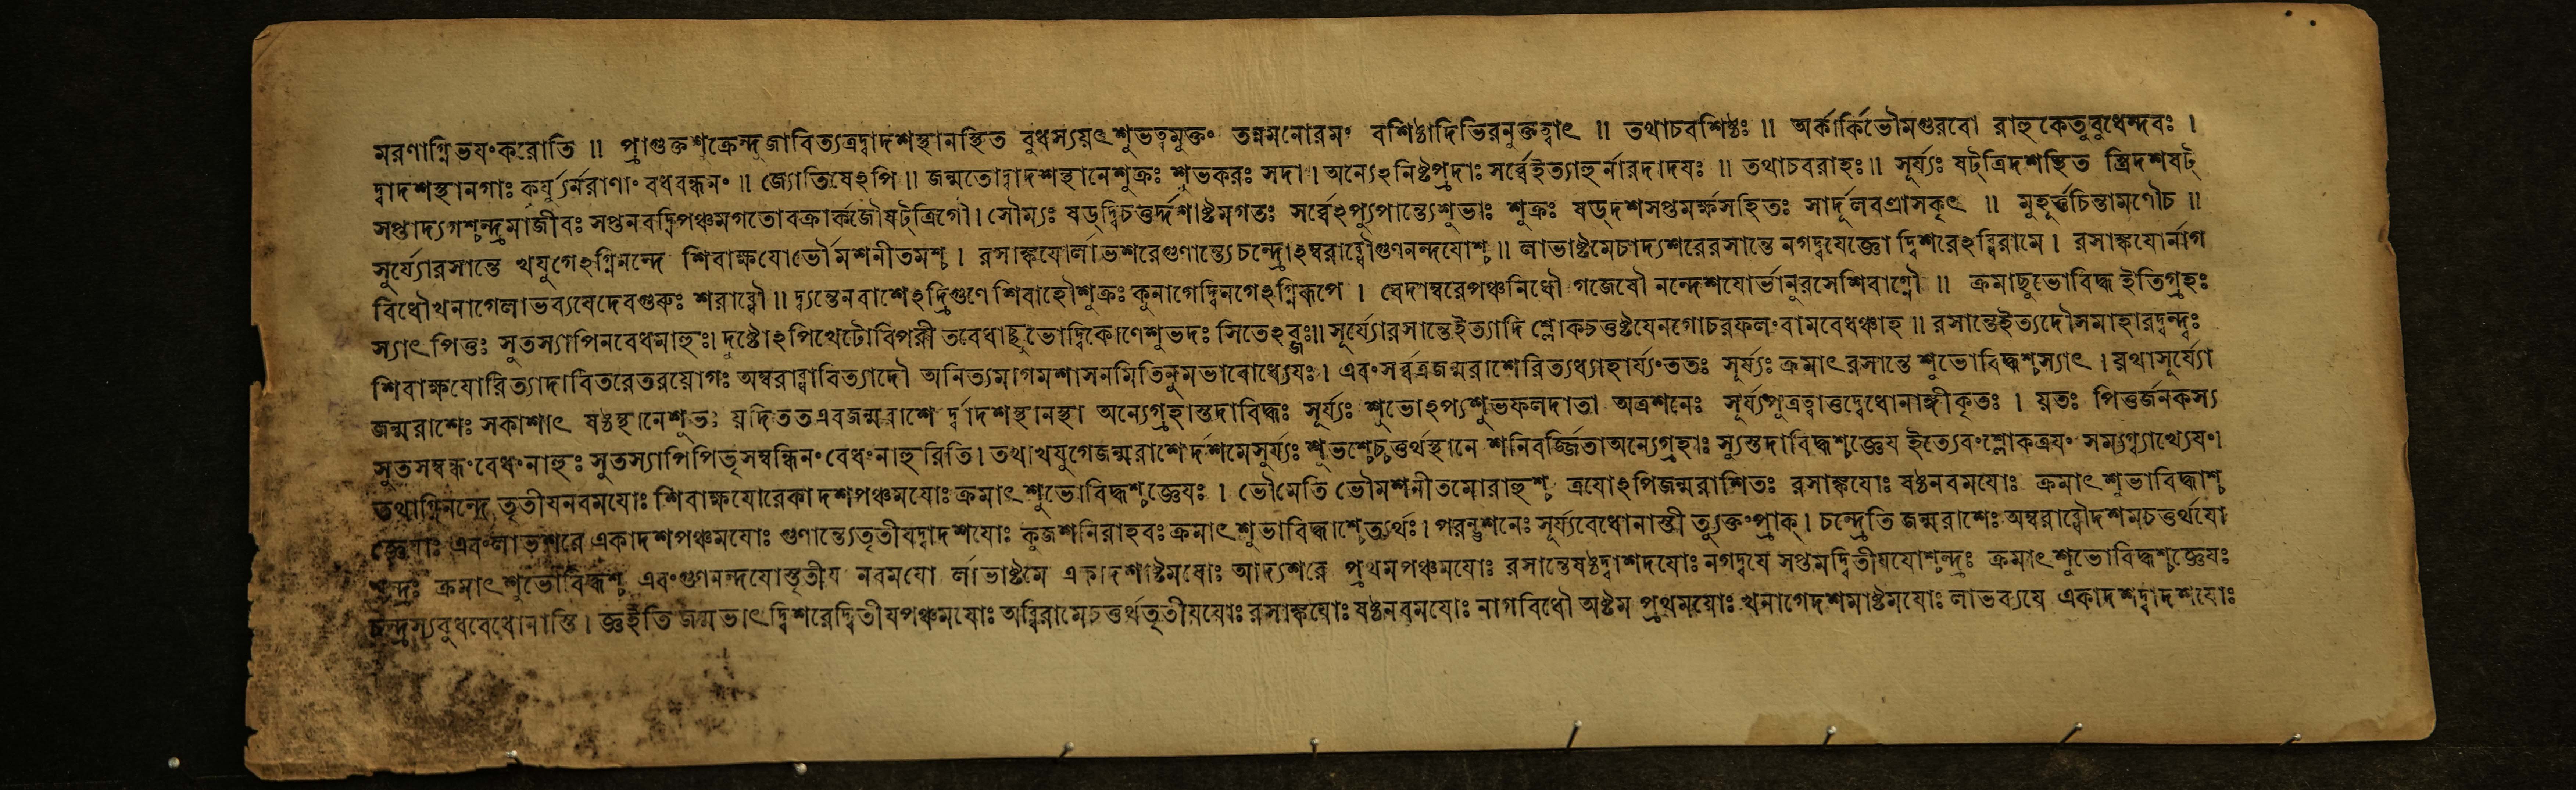 মরণাগ্নিভয়ংকরোতি ॥ প্রাগুক্তশুক্রেন্দুজাবিত্যত্রদ্বাদশস্থানস্থিত বুধস্যয়ৎশুভত্বমুক্তং তন্নমনোরমং বশিষ্ঠাদিভিরনুক্তত্বাৎ ॥ তথাচবশিষ্ঠঃ ॥ অর্কার্কিভৌমগুরবো রাহুকেতুবুধেন্দবঃ ।
দ্বাদশস্থানগাঃ কর্যুর্নরাণাং বধবন্ধনং ॥ জ্যোতিষেঽপি ॥ জন্মতোদ্বাদশস্থানেশুক্রঃ শুভকরঃ সদা । অন্যেঽনিষ্টপ্রদাঃ সর্ব্বেইত্যাহুর্নারদাদয়ঃ ॥ তথাচবরাহঃ ॥ সূর্য্যঃ ষট্ত্রিদশস্থিত স্ত্রিদশষট্
সপ্তাদ্যগশ্চন্দ্রমাজীবঃ সপ্তনবদ্বিপঞ্চমগতোবক্রার্কজৌষট্ত্রিগৌ । সৌম্যঃ ষড্দ্বিচত্তুর্দ্দশাষ্টমগতঃ সর্ব্বেঽপ্যুপান্ত্যেশুভাঃ শুক্রঃ ষড্দশসপ্তমর্ক্ষসহিতঃ সার্দূলবণ্রাসকৃৎ ॥ মুহূর্ত্তচিন্তামণৌচ ॥
সূর্য্যোরসান্তে খযুগেঽগ্নিনন্দে শিবাক্ষযোর্ভৌমশনীতমশ্চ । রসাঙ্কযোর্লাভশরেগুণান্ত্যেচন্দ্রোঽম্বরাব্ধৌগুণনন্দযোশ্চ ॥ লাভাষ্টমেচাদ্যশরেরসান্তে নগদ্বযেজ্ঞো দ্বিশরেঽব্ধিরামে । রসাঙ্কযোর্নাগ
বিধৌখনাগেলাভব্যযেদেবগুরুঃ শরাব্ধৌ ॥ দ্ব্যন্তেনবাশেঽদ্রিগুণে শিবাহৌশুক্রঃ কুনাগেদ্বিনগেঽগ্নিরূপে । বেদাম্বরেপঞ্চনিধৌ গজেষৌ নন্দেশযোর্ভানুরসেশিবাগ্নৌ ॥ ক্রমাচ্ছুভোবিদ্ধ ইতিগ্রহঃ
স্যাৎ পিত্তুঃ সুতস্যাপিনবেধমাহুঃ। দুষ্টোঽপিখেটোবিপরী তবেধাচ্ছুভোদ্বিকোণেশুভদঃ সিতেঽব্জঃ॥ সূর্য্যোরসান্তেইত্যাদি শ্লোকচত্তুষ্টযেনগোচরফলংবামবেধঞ্চাহ ॥ রসান্তেইত্যদৌসমাহারদ্বন্দ্বঃ
শিবাক্ষযোরিত্যাদাবিতরেতরয়োগঃ অম্বরাব্ধাবিত্যাদৌ অনিত্যমাগমশাসনমিতিনুমভাবোধ্যেযঃ । এবংসর্ব্বত্রজন্মরাশেরিত্যধ্যাহার্য্যংততঃ সূর্য্যঃ ক্রমাৎ রসান্তে শুভোবিদ্ধশ্চস্যাৎ । য়থাসূর্য্যো
জন্মরাশেঃ সকাশাৎ ষষ্ঠস্থানেশুভঃ য়দিততএবজন্মরাশে র্দ্বাদশস্থানস্থা অন্যেগ্রহাস্তদাবিদ্ধঃ সূর্য্যঃ শুভোঽপ্যশুভফলদাতা অত্রশনেঃ সূর্য্যপুত্রত্বাত্তদ্বেধোনাঙ্গীকৃতঃ । য়তঃ পিত্তুর্জনকস্য
সুতসম্বন্ধংবেধংনাহুঃ সুতস্যাপিপিতৃসম্বন্ধিনংবেধংনাহুরিতি । তথাখযুগেজন্মরাশের্দশমেসূর্য্যঃ শুভশ্চেচ্চতুর্থস্থানে শনিবর্জ্জিতাঅন্যেগ্রহাঃ স্যুস্তদাবিদ্ধশ্চজ্ঞেয ইত্যেবংশ্লোকত্রযং সম্যগ্ব্যাখ্যেযং।
তথাগ্নিনন্দে তৃতীযনবমযোঃ শিবাক্ষযোরেকাদশপঞ্চমযোঃ ক্রমাৎ শুভোবিদ্ধশ্চজ্ঞেযঃ । ভৌমেতি ভৌমশনীতমোরাহুশ্চ ত্রযোঽপিজন্মরাশিতঃ রসাঙ্কযোঃ ষষ্ঠনবমযোঃ ক্রমাৎ শুভাবিদ্ধাশ্চ
জ্ঞেযাঃ এবংলাভশরে একাদশপঞ্চমযোঃ গুণান্ত্যেতৃতীযদ্বাদশযোঃ কুজশনিরাহবঃ ক্রমাৎ শুভাবিদ্ধাশ্চেত্যর্থঃ। পরন্তুশনেঃ সূর্য্যবেধোনাস্তী ত্যুক্তংপ্রাক্ । চন্দ্রেতি জন্মরাশেঃ অম্বরাব্ধৌদশমচত্তুর্থযো
শ্চন্দ্রঃ ক্রমাৎ শুভোবিদ্ধশ্চ এবংগুণনন্দযোস্তৃতীয নবমযো র্লাভাষ্টমে একাদশাষ্টমযোঃ আদ্যশরে প্রথমপঞ্চমযোঃ রসান্তেষষ্ঠদ্বাশদযোঃ নগদ্বযে সপ্তমদ্বিতীযযোশ্চন্দ্রঃ ক্রমাৎ শুভোবিদ্ধশ্চজ্ঞেযঃ
চন্দ্রস্যবুধবেধোনাস্তি । জ্ঞইতি জন্মভাৎ দ্বিশরেদ্বিতীযপঞ্চমযোঃ অব্ধিরামেচত্তুর্থতৃতীযযোঃ রসাঙ্কযোঃ ষষ্ঠনবমযোঃ নাগবিধৌ অষ্টম প্রথমযোঃ খনাগেদশমাষ্টমযোঃ লাভব্যযে একাদশদ্বাদশযোঃ